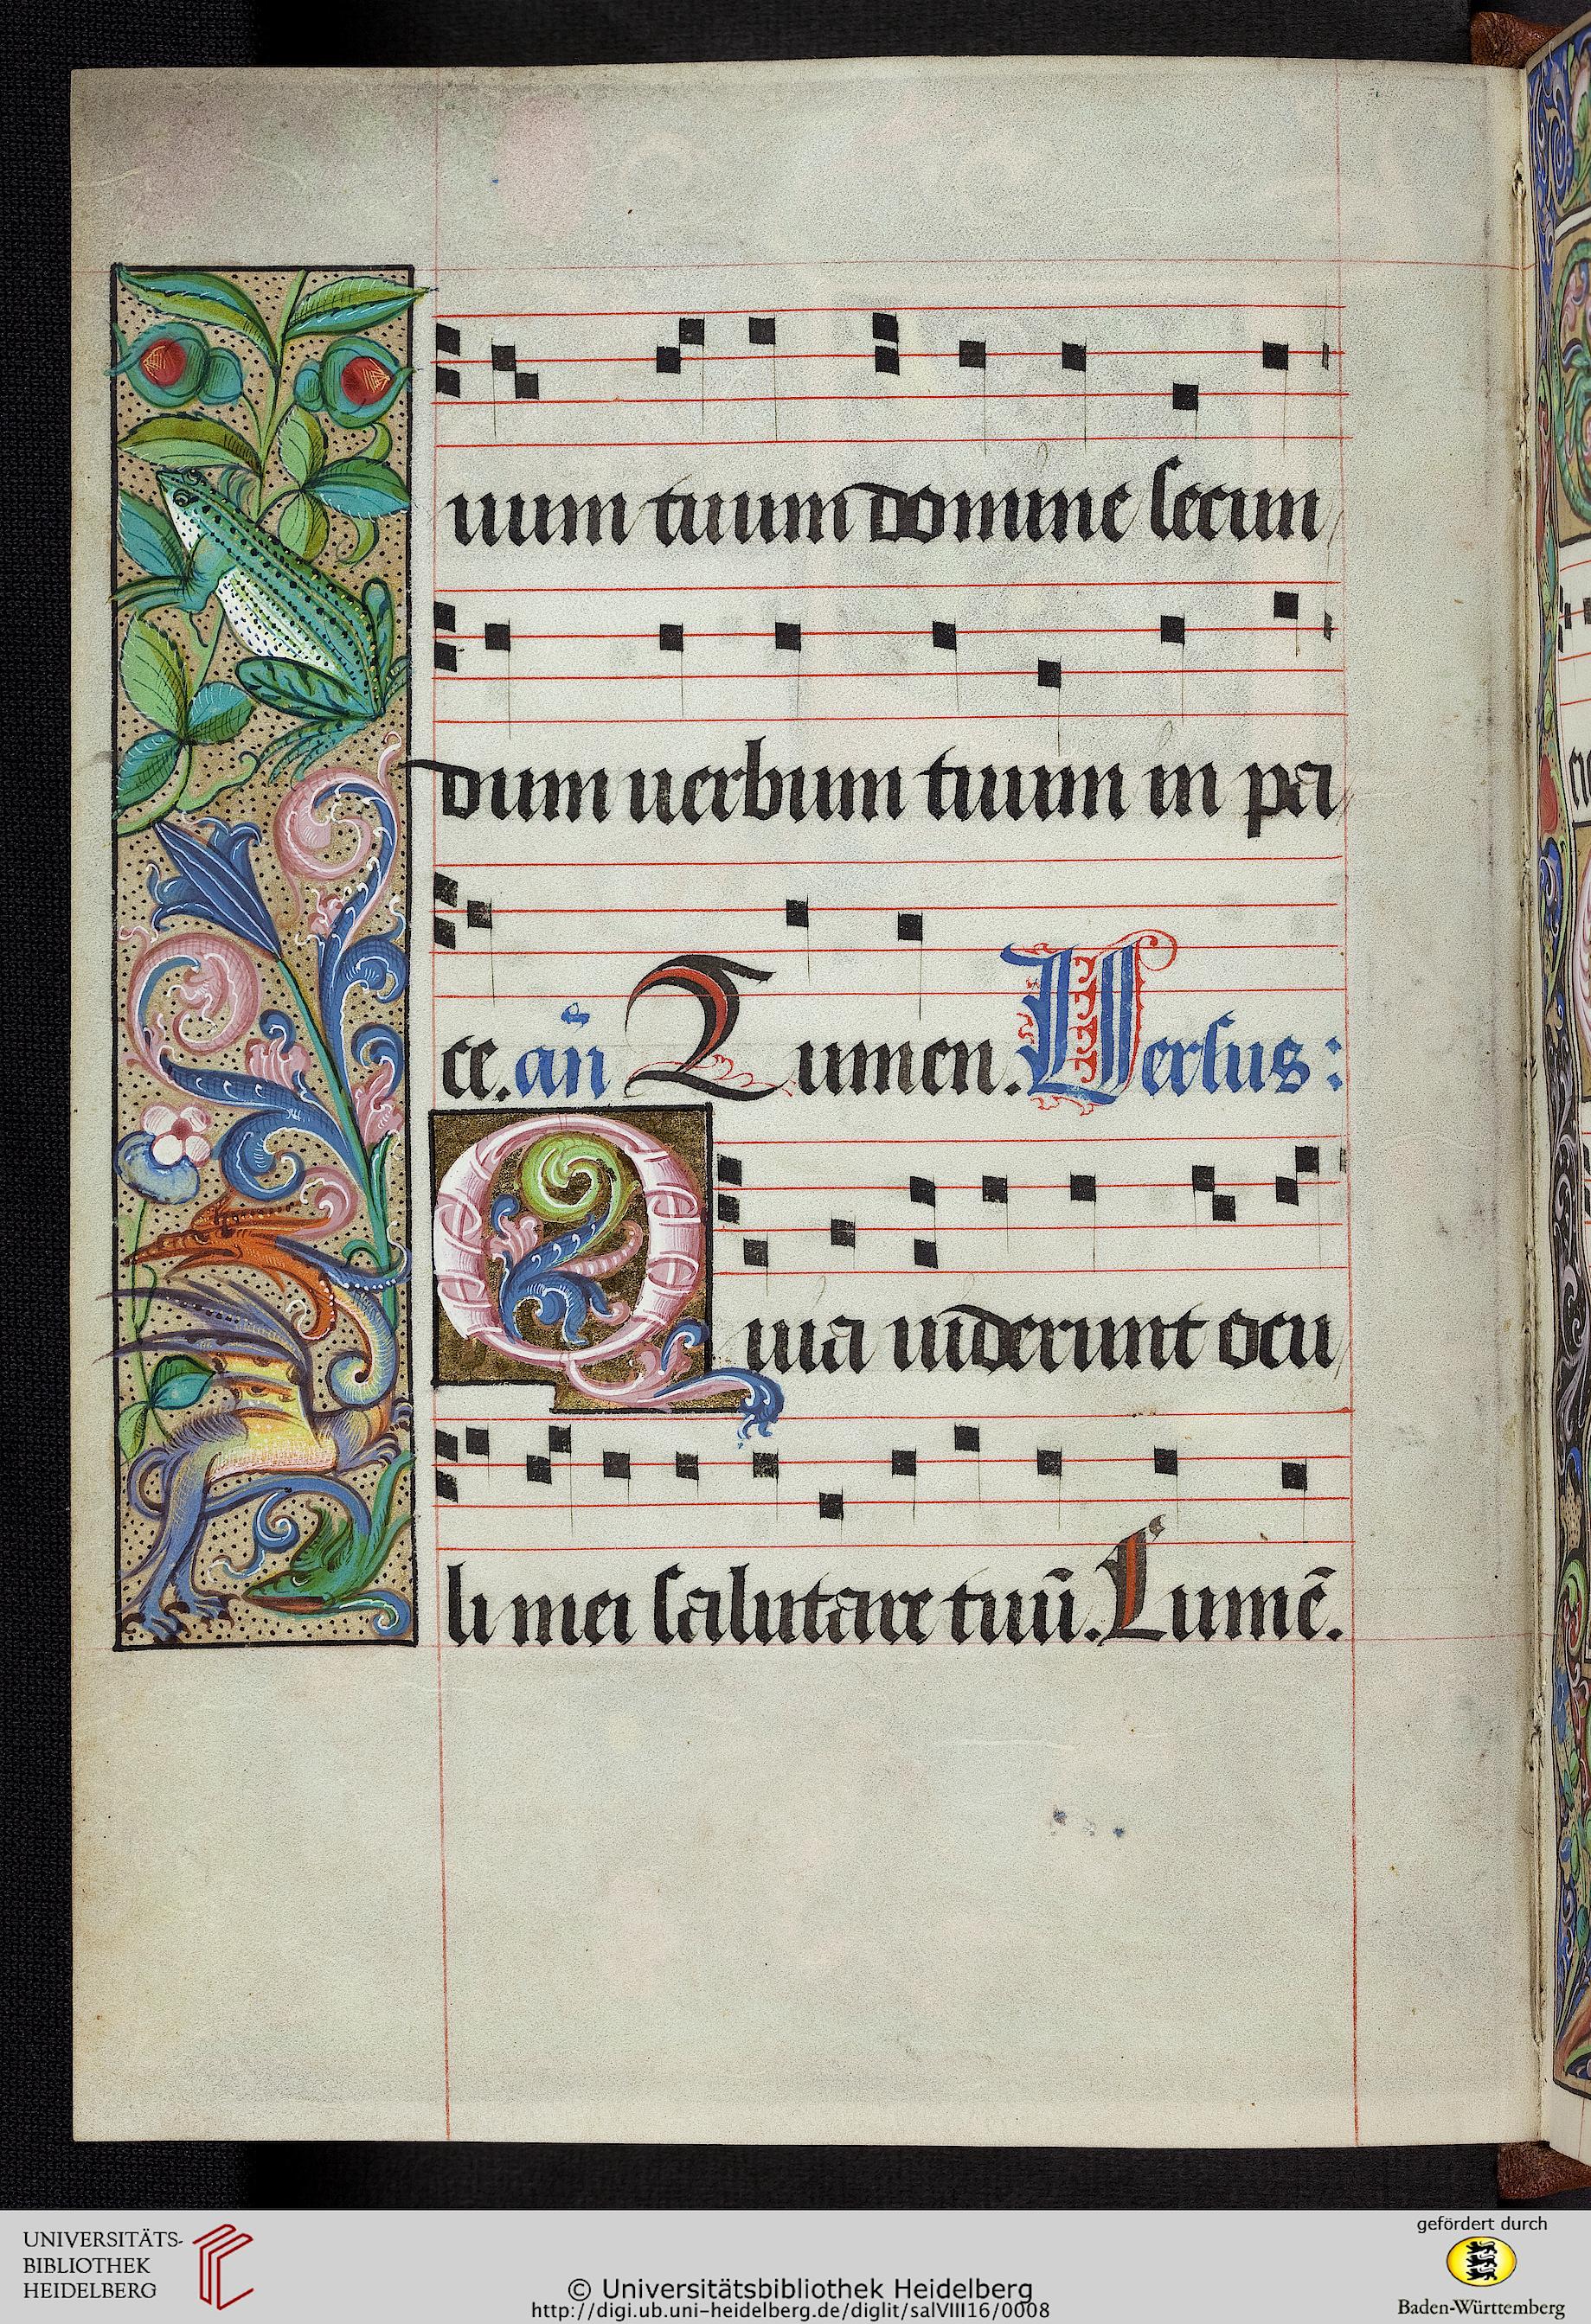 uum tuum domine secun
dum uerbum tuum in pa
ce. an̄ Lumen. Versus:
Quia uiderunt ocu
li mei salutare tuū. Lumē.
UNIVERSITÄTS-
BIBLIOTHEK
HEIDELBERG
© Universitätsbibliothek Heidelberg
http://digi.ub.uni-heidelberg.de/diglit/salVIII16/0008
gefördert durch
Baden-Württemberg